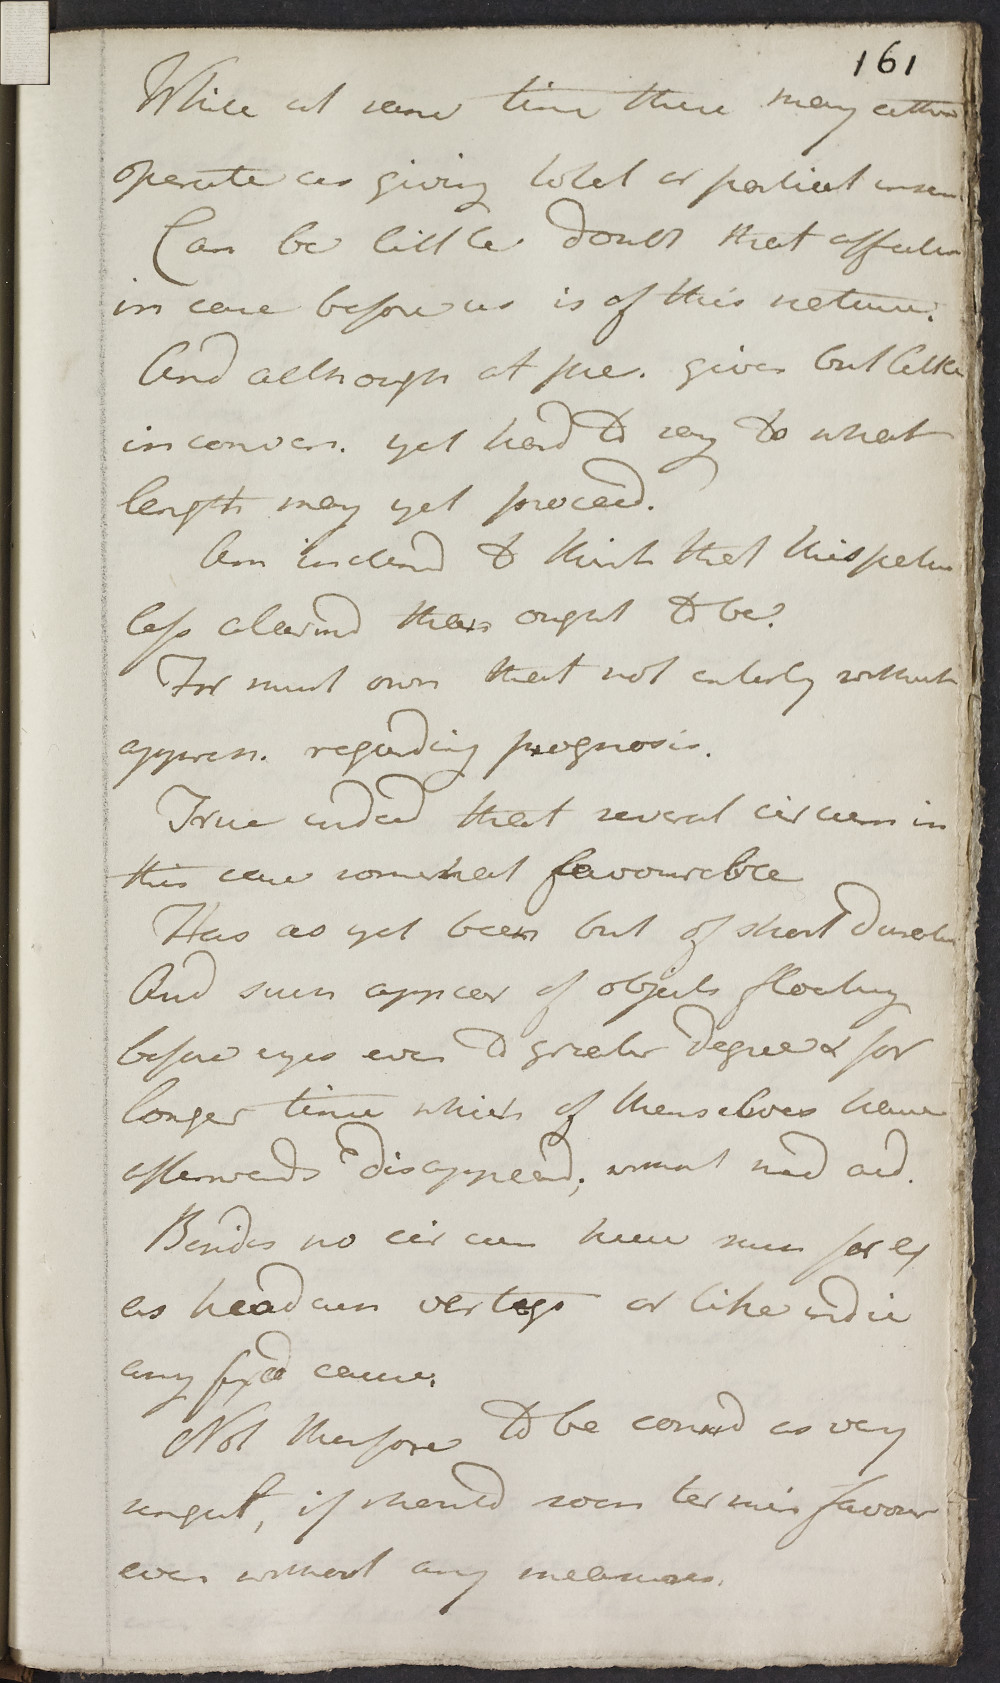 161
While at same time there may others
operate as giving total or partial insen
Can be little doubt that affectn
in case before us is of this nature.
And although at pre. gives but little
inconven. yet hard to say to what
length may yet proceed.
Am inclind to think that this patn
less alarmd than ought to be.
For must own that not entirely without
appreh. regarding prognosis.
True indeed that several circum in
this case somewhat favourable
Has as yet been but of short duratn
And seen appear of objects floating
before eyes even to greater degree & for
longer time which of themselves have
afterwards disappeard, without med aid.
Besides no circum here seen for ex
as headach vertigo or like indic
any fixd cause.
Not therefore to be consd as very
singul, if should soon termin favour
even without any measures.